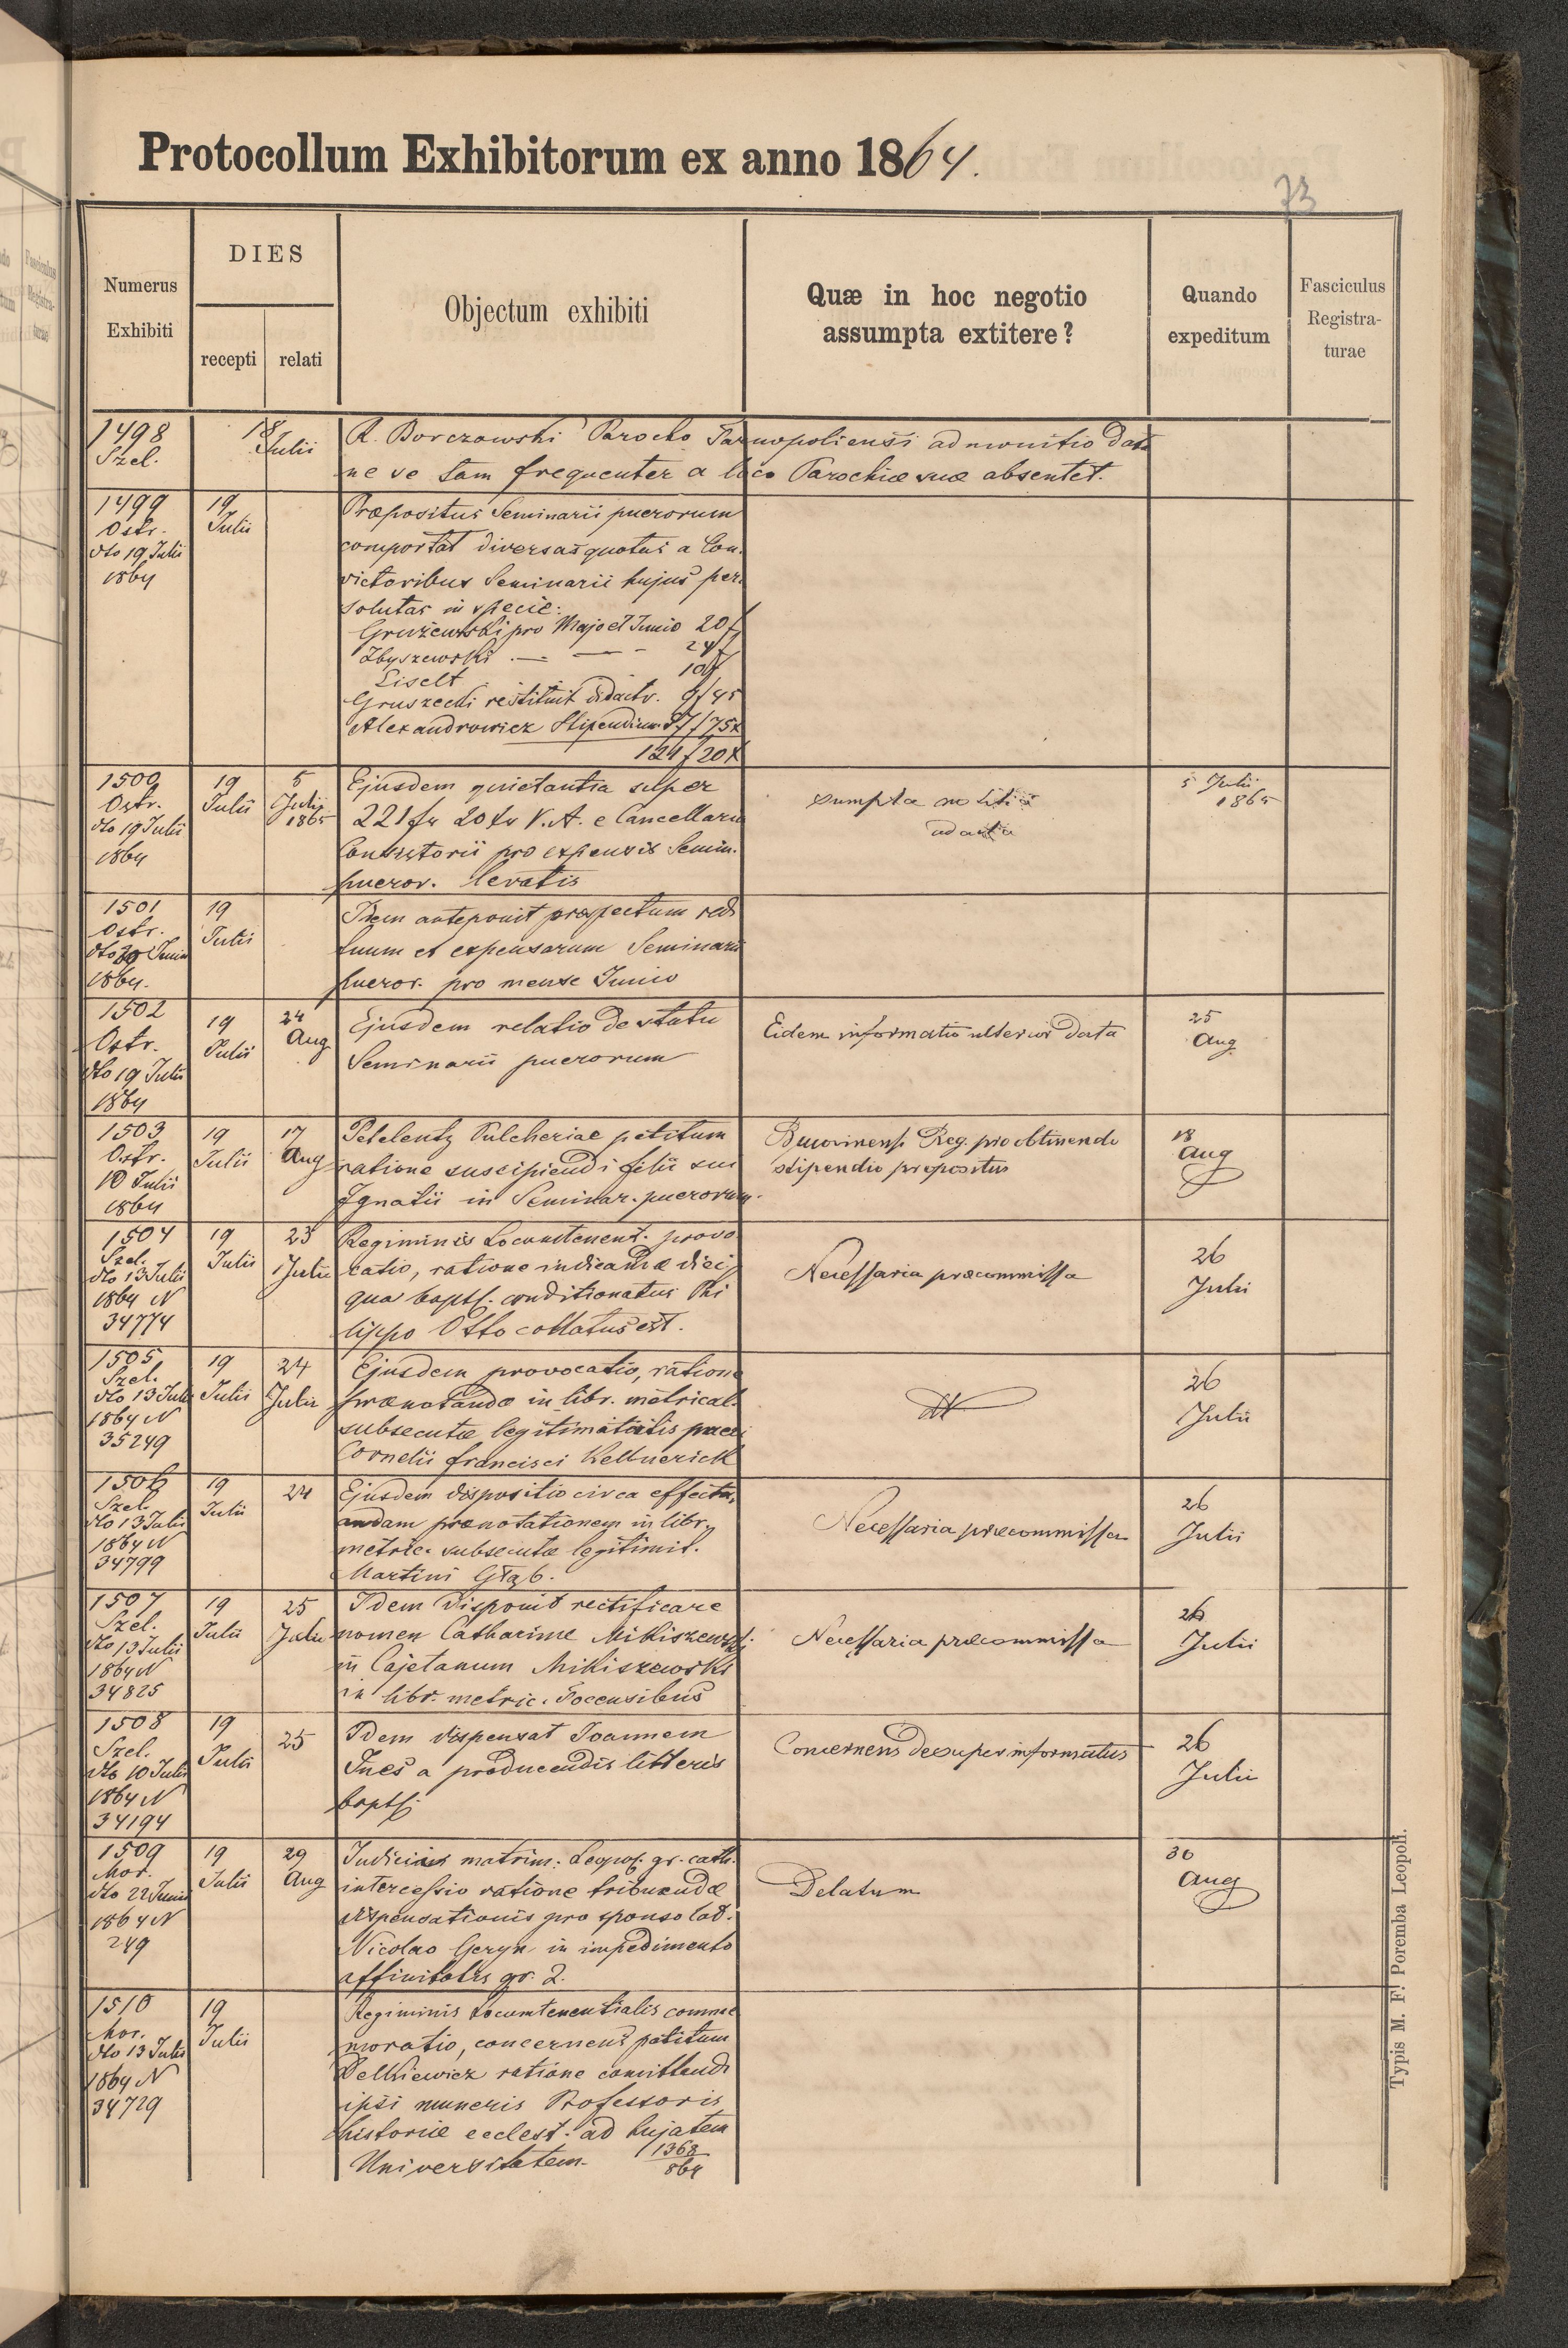 Protocollum Exhibitorum ex anno 1864.
73
Numerus
Exhibiti
DIES
recepti
relati
Objectum exhibiti
Quæ in hoc negotio
assumpta extitere?
Quando
expeditum
Fasciculus
Registra-
turae
1498
Szel.
18
Julii
R. Borczowski Parocho Tarnopoliensi admonitio data
ne se tam frequenter a loco Parochiæ suæ absentet.
1499
Ostr.
dto 19 Julii
1864
19
Julii
Præpositus Seminarii puerorum
comportat diversas quotas a Con-
victoribus Seminarii hujus per-
solutas in specie:
Gruiewski pro Majo et Junio 20 f
Zbyszewski — — - 24 f
Liselt 10 f
Gruszecki restituit didactr. 9 f 45
Alexandrowicz Stipendium 57 f 75 x
121 f 20 x
1500
Ostr.
dto 19 Julii
1864
19
Julii
5
Julij
1865
Ejusdem quietantia super
221 fr 20 xr V.A. e Cancellaria
Consistorii pro expensis Semin.
pueror. levatis
sumpta notitia
ad acta
5 Julii
1865
1501
Ostr.
dto 30 Junii
1864.
19
Julii
Idem anteponit prospectum redi
tuum et expensarum Seminarii
pueror. pro mense Junio
1502
Ostr.
dto 19 Julii
1864
19
Julii
24
Aug
Ejusdem relatio de statu
Seminarii puerorum
Eidem informatio ulterior data
25
Aug
1503
Ostr.
10 Julii
1864
19
Julii
17
Aug
Petelentz Pulcheriae petitum
ratione suscipiendi filii sui
Ignatii in Seminar. puerorum.
Bucovinensi Reg. pro obtinendo
stipendio propositus
18
Aug
1504
Szel.
dto 13 Julii
1864 N
34774
19
Julii
23
Julii
Regiminis Locumtenent. provo
catio, ratione indicandæ diei,
qua bapts. conditionatus Phi
lippo Otto collatus est.
Necessaria præcommissa
26
Julii
1505
Szel.
dto 13 Julii
1864 N
35249
19
Julii
24
Julii
Ejusdem provocatio, ratione
prænotandæ in libr. metrical.
subsecutæ legitimitatis pueri
Cornelii Francisci
dt
26
Julii
1506
Szel.
dto 13 Julii
1864 N
34799
19
Julii
24
Ejusdem dispositio circa effectu-
andam prænotationem in libr.
metric. subsecutæ legitimit.
Martini Głąb.
Necessaria præcommissa
26
Julii
1507
Szel.
dto 13 Julii
1864 N
34825
19
Julii
25
Julii
Idem disponit rectificare
nomen Catharinæ Mikiszewski
in Cajetanum Mikiszewski
in libr. metric.
Necessaria præcommissa
26
Julii
1508
Szel.
dto 10 Julii
1864 N
34194
19
Julii
25
Idem dispensat Joannem
Ines a producendis litteris
bapts.
Concernens desuper informatus
26
Julii
1509
Mor.
dto 22 Junii
1864 N
249
19
Julii
29
Aug
Judicii matrim. Leopol. gr. cath.
intercessio ratione tribuendæ
dispensationis pro sponso lat.
Nicolao Geryn in impedimento
affinitatis gr. 2.
Delatum
30
Aug
1510
Mor.
dto 13 Julii
1864 N
34729
19
Julii
Regiminis Locumtenentialis comme
moratio, concernens petitum
Delkiewicz ratione comittendi
ipsi muneris Professoris
historiæ ecclest. ad hujatem
Universitatem. 1368
864
Typis M. F. Poremba Leopoli.